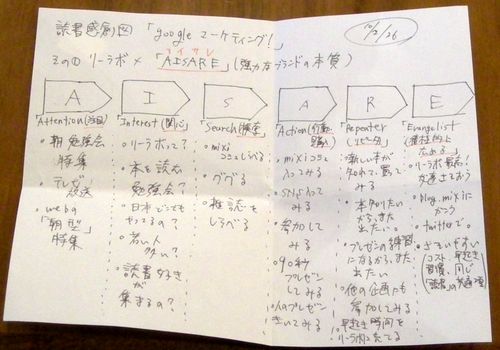 読書感創図「googleマーケティング！」
10/2/26
アイサレ
その① リーラボ×「AISARE」(強力なブランドの本質)
A
I
S
A
R
E
Attention(注目)
・朝勉強会
特集
・テレビ
放送
・webの
「朝型」
特集
Interest(関心)
・リーラボって？
・本を読む
勉強会？
・日本どこでも
やってるの？
・若い人
多い？
・読書好きが
集まるの？
Search(検索)
・mixi
コミュしらべる
・ググる
・雑誌を
しらべる
Action(行動、購入)
・mixiコミュ
入ってみる
・SNS入って
みる
・参加して
みる
・90秒
プレゼン
してみる
プレゼン
きいてみる
Repeater
(リピータ)
・新しい本が
知れて、買って
みる
・本知りたい
から、また
出たい。
・プレゼンの練習
になるから、また
出たい
・他の企画にも
参加してみる
早起き時間を
Evangelist
・リーラボ最高！
友達さそおう
・blog、mixiに
かこう
・twitterで。
・さそいやすい
コスト 早起き
習慣 同じ
「読書」の共通項